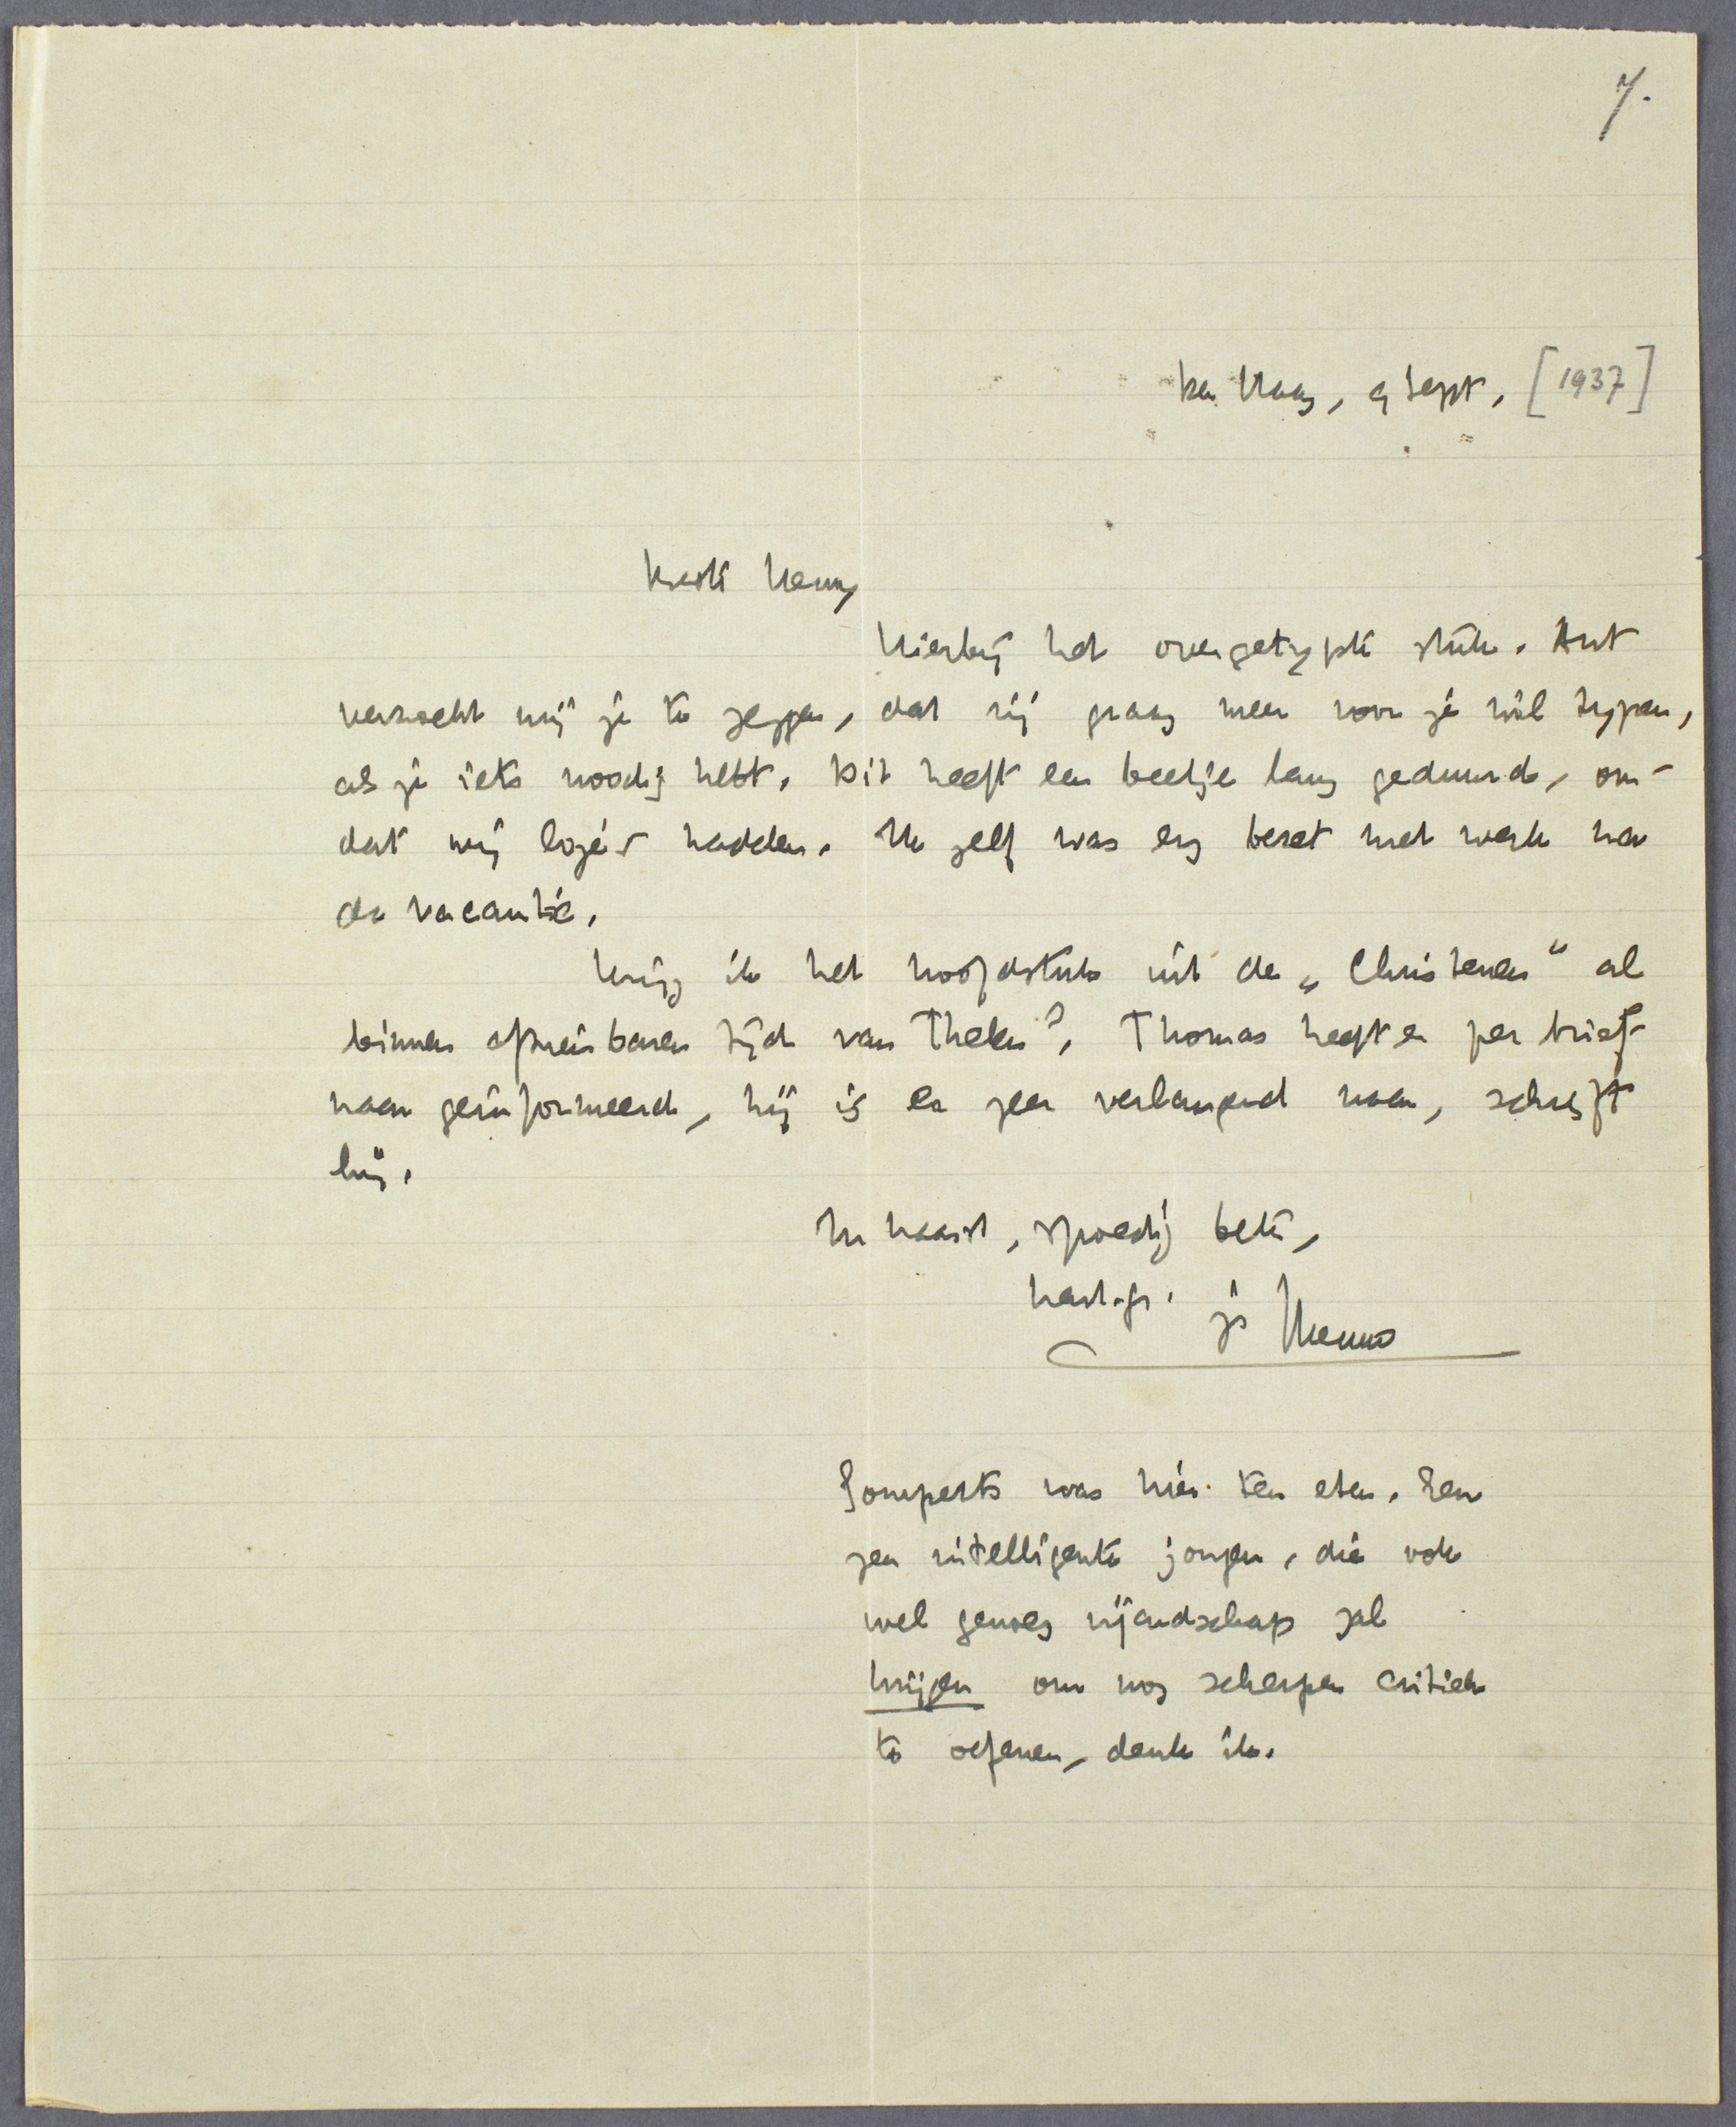 7.
Den Haag, 9 Sept. [1937]
Beste Henny
Hierbij het overgetypte stuk. Ant
verzocht mij je te zeggen, dat zij graag meer voor je wil typen,
als je iets noodig hebt. Dit heeft een beetje lang geduurd, om-
dat wij logé's hadden. Ik zelf was erg bezet met werk na
de vacantie.
Krijg ik het hoofdstuk uit de „Christenen" al
binnen afzienbaren tijd van Thelen? Thomas heeft er per brief
naar geïnformeerd, hij is er zeer verlangend naar, schrijft
hij.
In haast, spoedig beter,
hart. gr. je Menno
Gomperts was hier ten eten. Een
zeer intelligente jongen, die ook
wel genoeg vijandschap zal
krijgen om nog scherper critiek
te oefenen, denk ik.